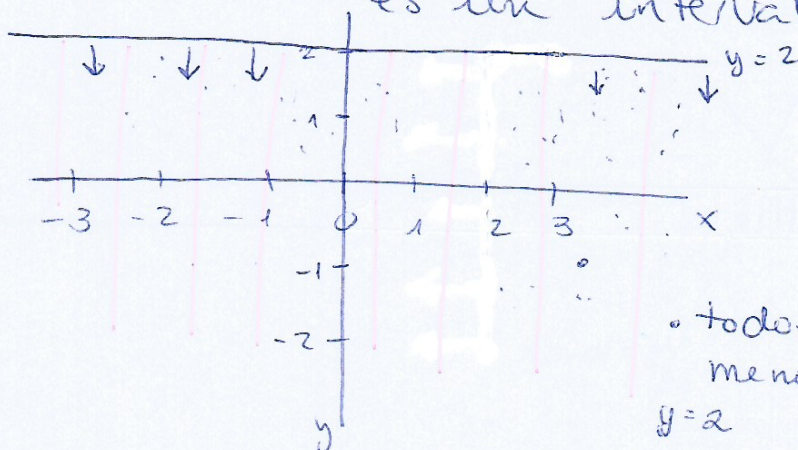 es un interva
2
y = 2
1
-3 -2 -1 0 1 2 3 x
-1
• todo
-2
men
y = 2
y